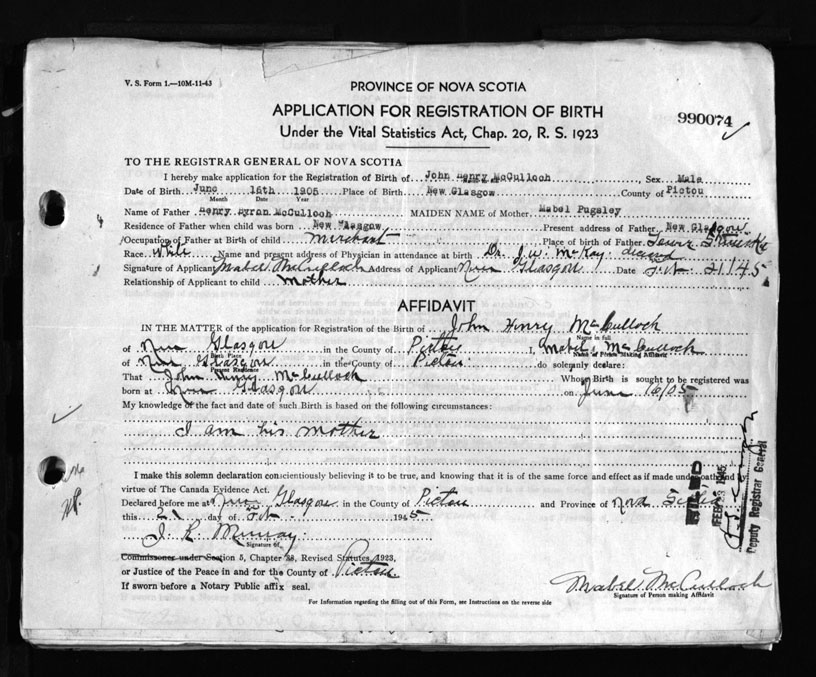 V. S. Form 1.—10M-11-43
PROVINCE OF NOVA SCOTIA
APPLICATION FOR REGISTRATION OF BIRTH
990074
Under the Vital Statistics Act, Chap. 20, R. S. 1923
TO THE REGISTRAR GENERAL OF NOVA SCOTIA
I hereby make application for the Registration of Birth of John Henry McCulloch, Sex Male
Date of Birth June 16th 1905 Place of Birth New Glasgow County of Pictou
Month Date Year
Name of Father Henry Byron McCulloch MAIDEN NAME of Mother Mabel Pugsley
Residence of Father when child was born New Glasgow Present address of Father New Glasgow
Occupation of Father at Birth of child merchant Place of birth of Father
Race White Name and present address of Physician in attendance at birth Dr. J.W. McKay, deceased
Signature of Applicant Mabel McCulloch Address of Applicant New Glasgow Date Feb. 21/45
Relationship of Applicant to child Mother
AFFIDAVIT
IN THE MATTER of the application for Registration of the Birth of John Henry McCulloch
Name in full
of New Glasgow in the County of Pictou I, Mabel McCulloch
Birth Place Name of Person Making Affidavit
of New Glasgow in the County of Pictou do solemnly declare:
Present Residence
That John Henry McCulloch Whose Birth is sought to be registered was
born at New Glasgow on June 16/05
My knowledge of the fact and date of such Birth is based on the following circumstances:
I am his mother
I make this solemn declaration conscientiously believing it to be true, and knowing that it is of the same force and effect as if made under oath and by
virtue of The Canada Evidence Act.
Declared before me at New Glasgow in the County of Pictou and Province of Nova Scotia
this 21 day of Feb. 1945
J R Murray
Signature of
Commissoner under Section 5, Chapter 38, Revised Statutes, 1923,
or Justice of the Peace in and for the County of Pictou.
If sworn before a Notary Public affix seal.
Mabel McCulloch
Signature of Person making Affidavit
For Information regarding the filling out of this Form, see Instructions on the reverse side
FILED
FEB 23 1945
Deputy Registrar General